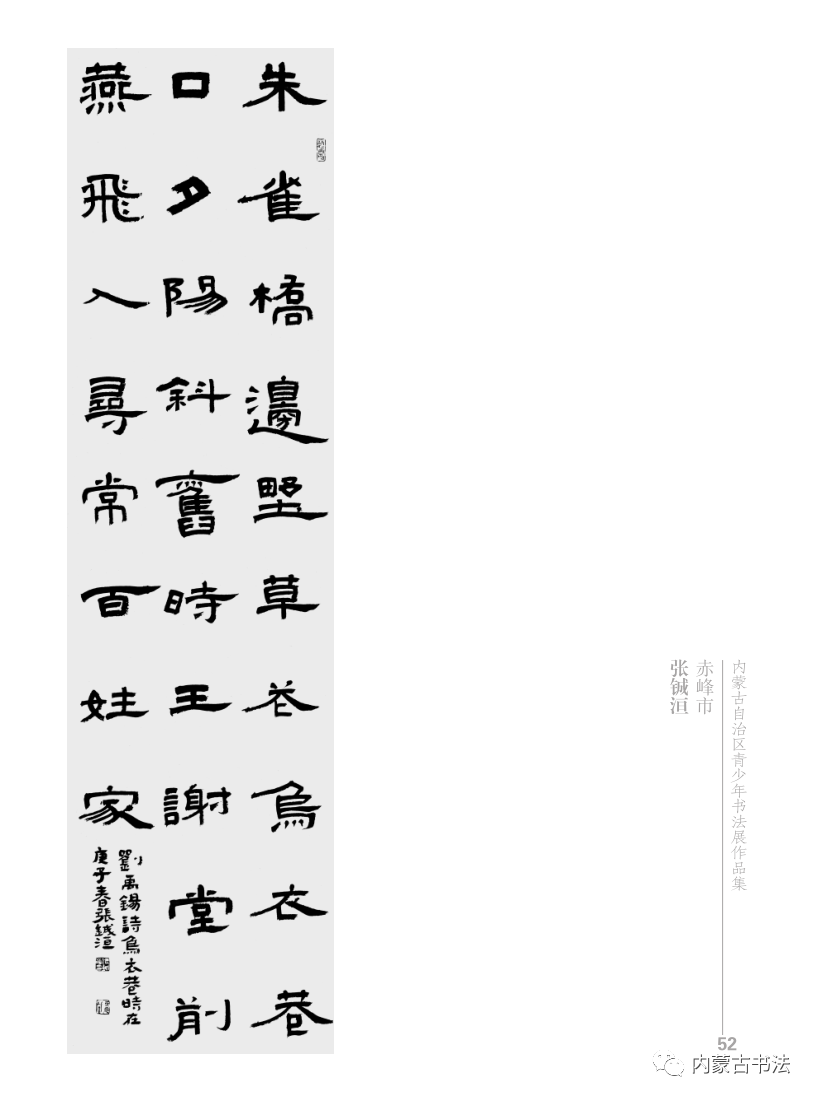 朱雀橋邊野草花烏衣巷
口夕陽斜舊時王謝堂前
燕飛入尋常百姓家
劉禹錫詩烏衣巷時在
庚子春張鋮洹
内蒙古自治区青少年书法展作品集
赤峰市
张铖洹
52
内蒙古书法